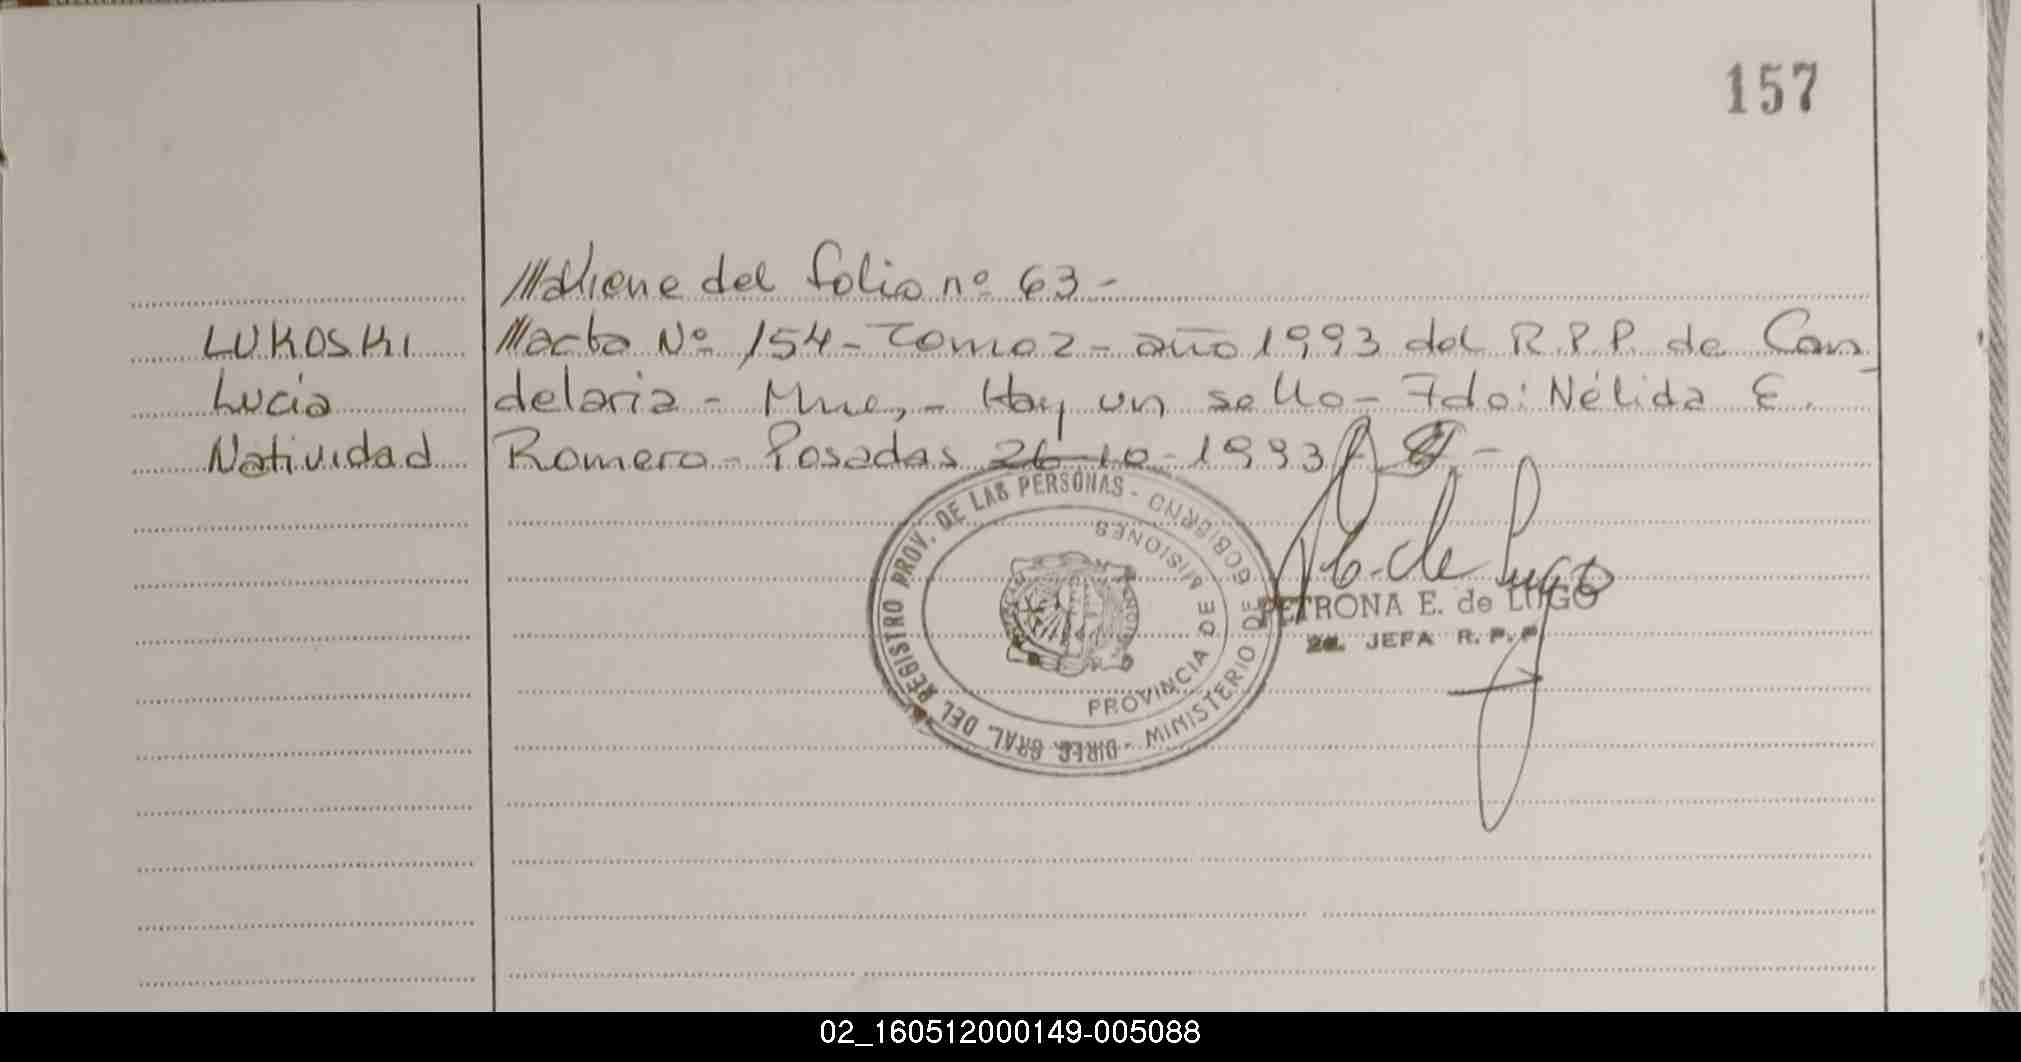 157
///Viene del folio nº 63-
LUKOSKI
Lucia
Natividad
///acta Nº 154- Tomo 2- año 1993 del R.P.P. de Can
delaria- Mnes,- Hay un sello- Fdo: Nélida E.
Romero- Posadas 26-10-1993
DIREC. GRAL. DEL REGISTRO PROV. DE LAS PERSONAS - MINISTERIO DE GOBIERNO
PROVINCIA DE MISIONES
P. E. de Lugo
PETRONA E. de LUGO
2a. JEFA R. P. P
02_160512000149-005088